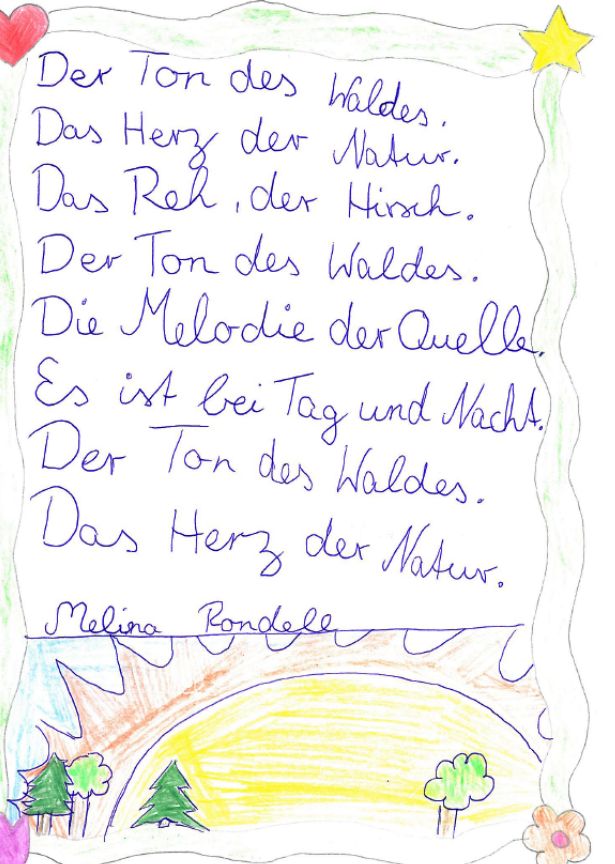 Der Ton des Waldes.
Das Herz der Natur.
Das Reh, der Hirsch.
Der Ton des Waldes.
Die Melodie der Quelle.
Es ist bei Tag und Nacht.
Der Ton des Waldes.
Das Herz der Natur.
Melina Rondell